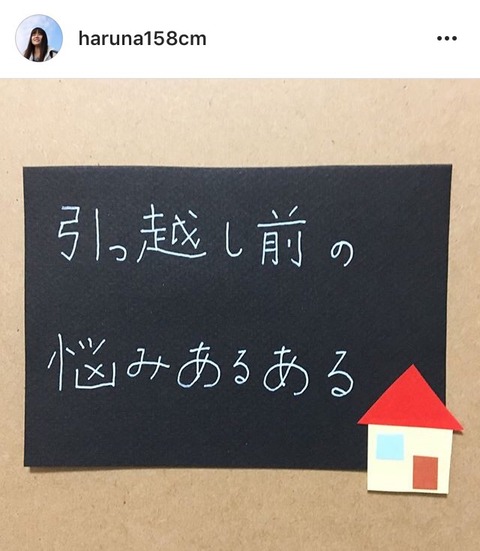 haruna158cm
引っ越し前の
悩みあるある